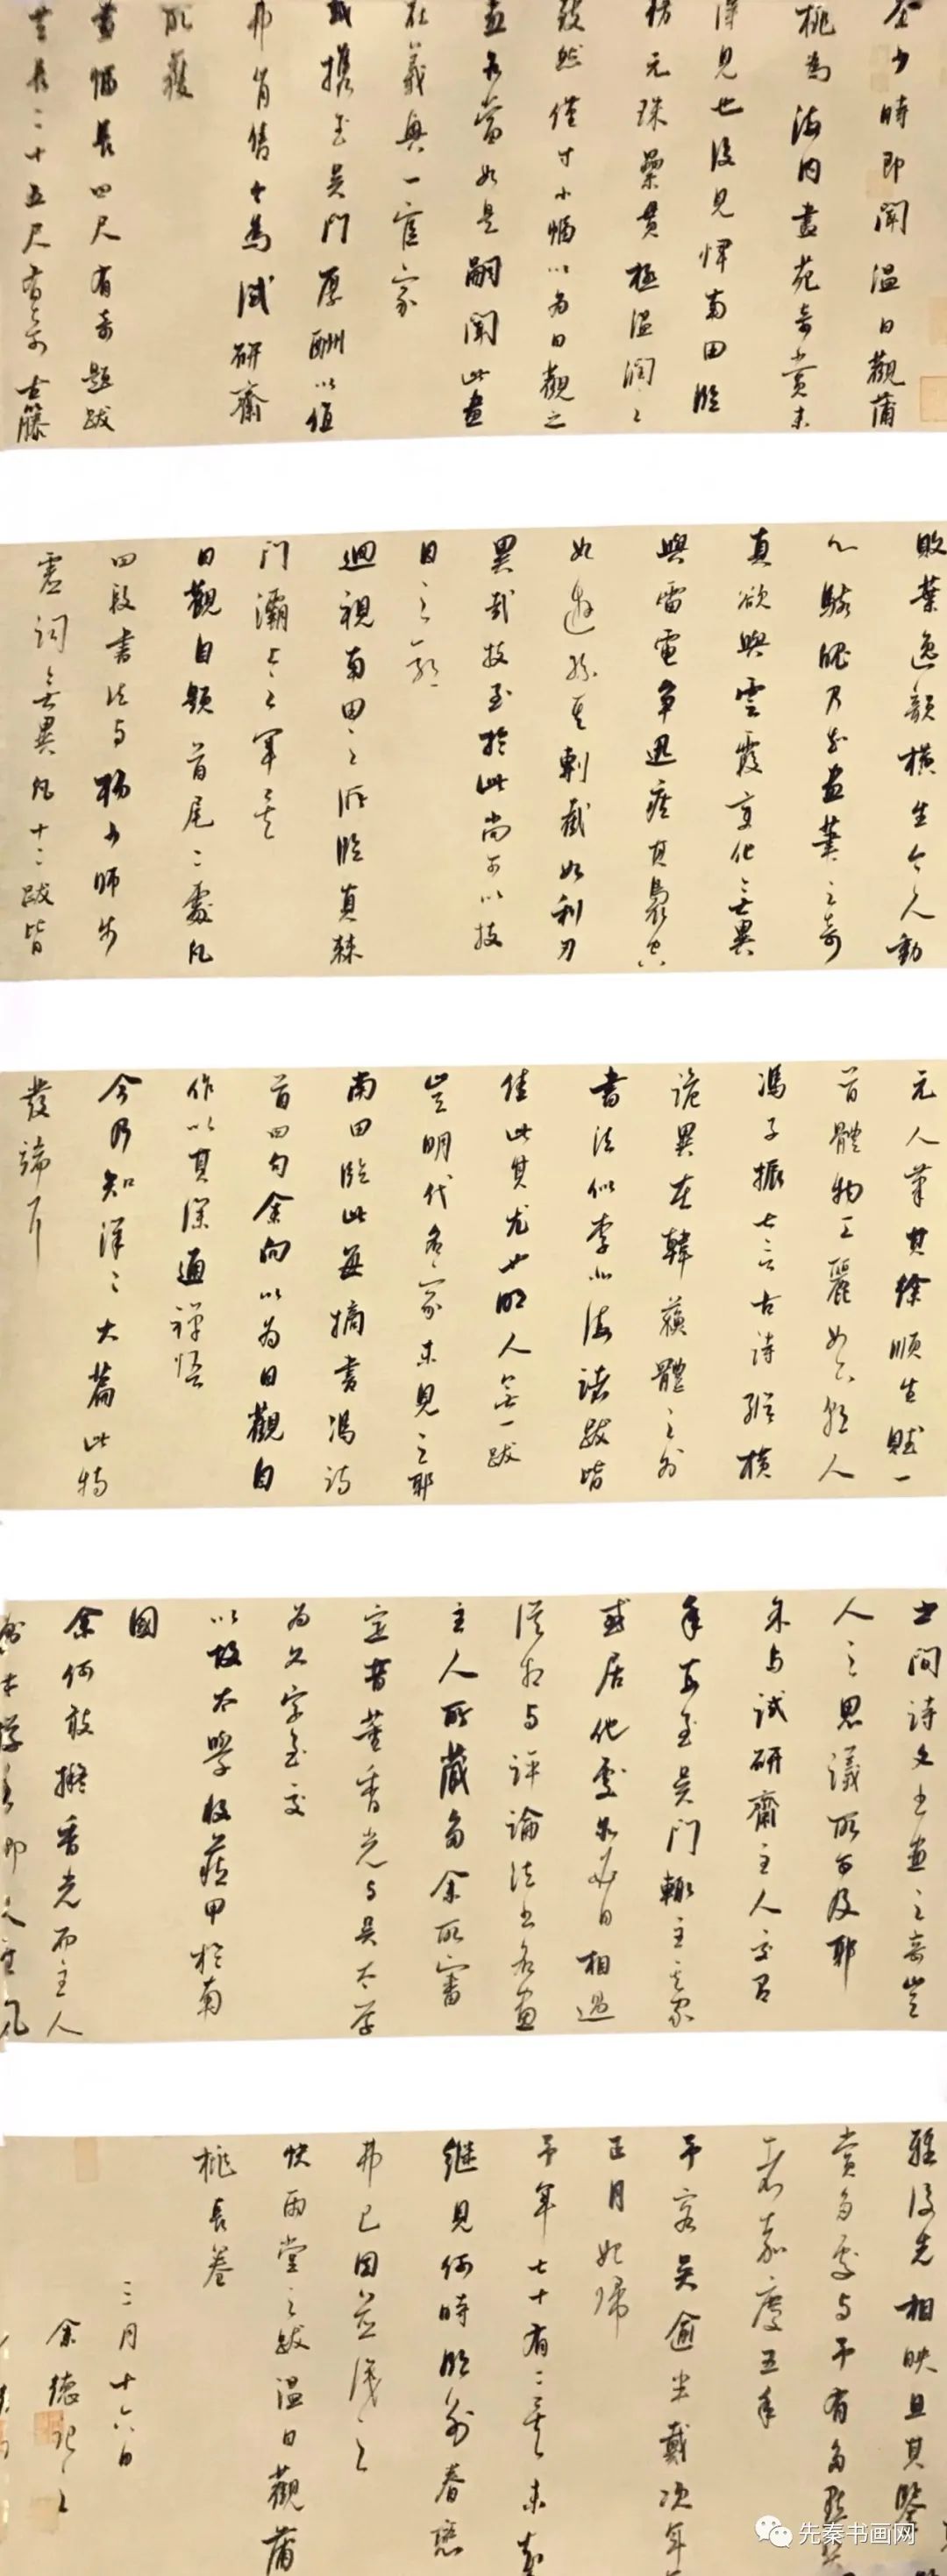 余少時即聞溫日觀蒲
桃為海内畫苑奇賞未
得見也後見惲南田臨
枯元珠纍貫極溫潤之
致然僅寸小幅以為日觀之
畫名當如是嗣聞此畫
在義興一宦家
或携至吳門厚酬以值
弗肯售士為試研齋
所獲
畫幅長四尺有奇題跋
長二十五尺有奇古藤
敗葉逸韻橫生令人動
心駭魄乃知畫葉之奇
真欲與雲霞變化無異
與雷電爭迅疾其裊空
如遊絲其剸截如利刃
異哉技至於此尚可以技
目之耶
迴視南田之派臨真棘
門灞上之軍矣
日觀自題首尾二處凡
四段書法與楊少師步
虛詞無異凡十二跋皆
元人筆其徐順生賦一
首體物工麗如六朝人
馮子振七言古詩縱橫
詭異在韓蘇體之外
書法似李北海諸跋皆
佳此其尤也明人無一跋
豈明代名家未見之耶
南田臨此每摘書馮詩
首四句余向以為日觀自
作以其深通禪悟
今乃知洋洋大篇此特
發端耳
世間詩文書畫之奇豈
人之思議所可及耶
余與試研齋主人交有
年每至吳門輒主其家
或居他處亦必日相過
從相與評論法書名畫
主人所藏多余所審
定昔董香光與吳太學
為文字至交
以故太學收藏甲於南
國
余何敢擬香光而主人
雅後先相映且其鑒
賞多處與予有多默契
嘉慶五年
予客吳逾半載次年
正月始歸
予年七十有二矣未知
繼見何時臨别眷戀
弗已因並識之
快雨堂之跋溫日觀蒲
桃長卷
三月十六日
余德記之
先秦书画网